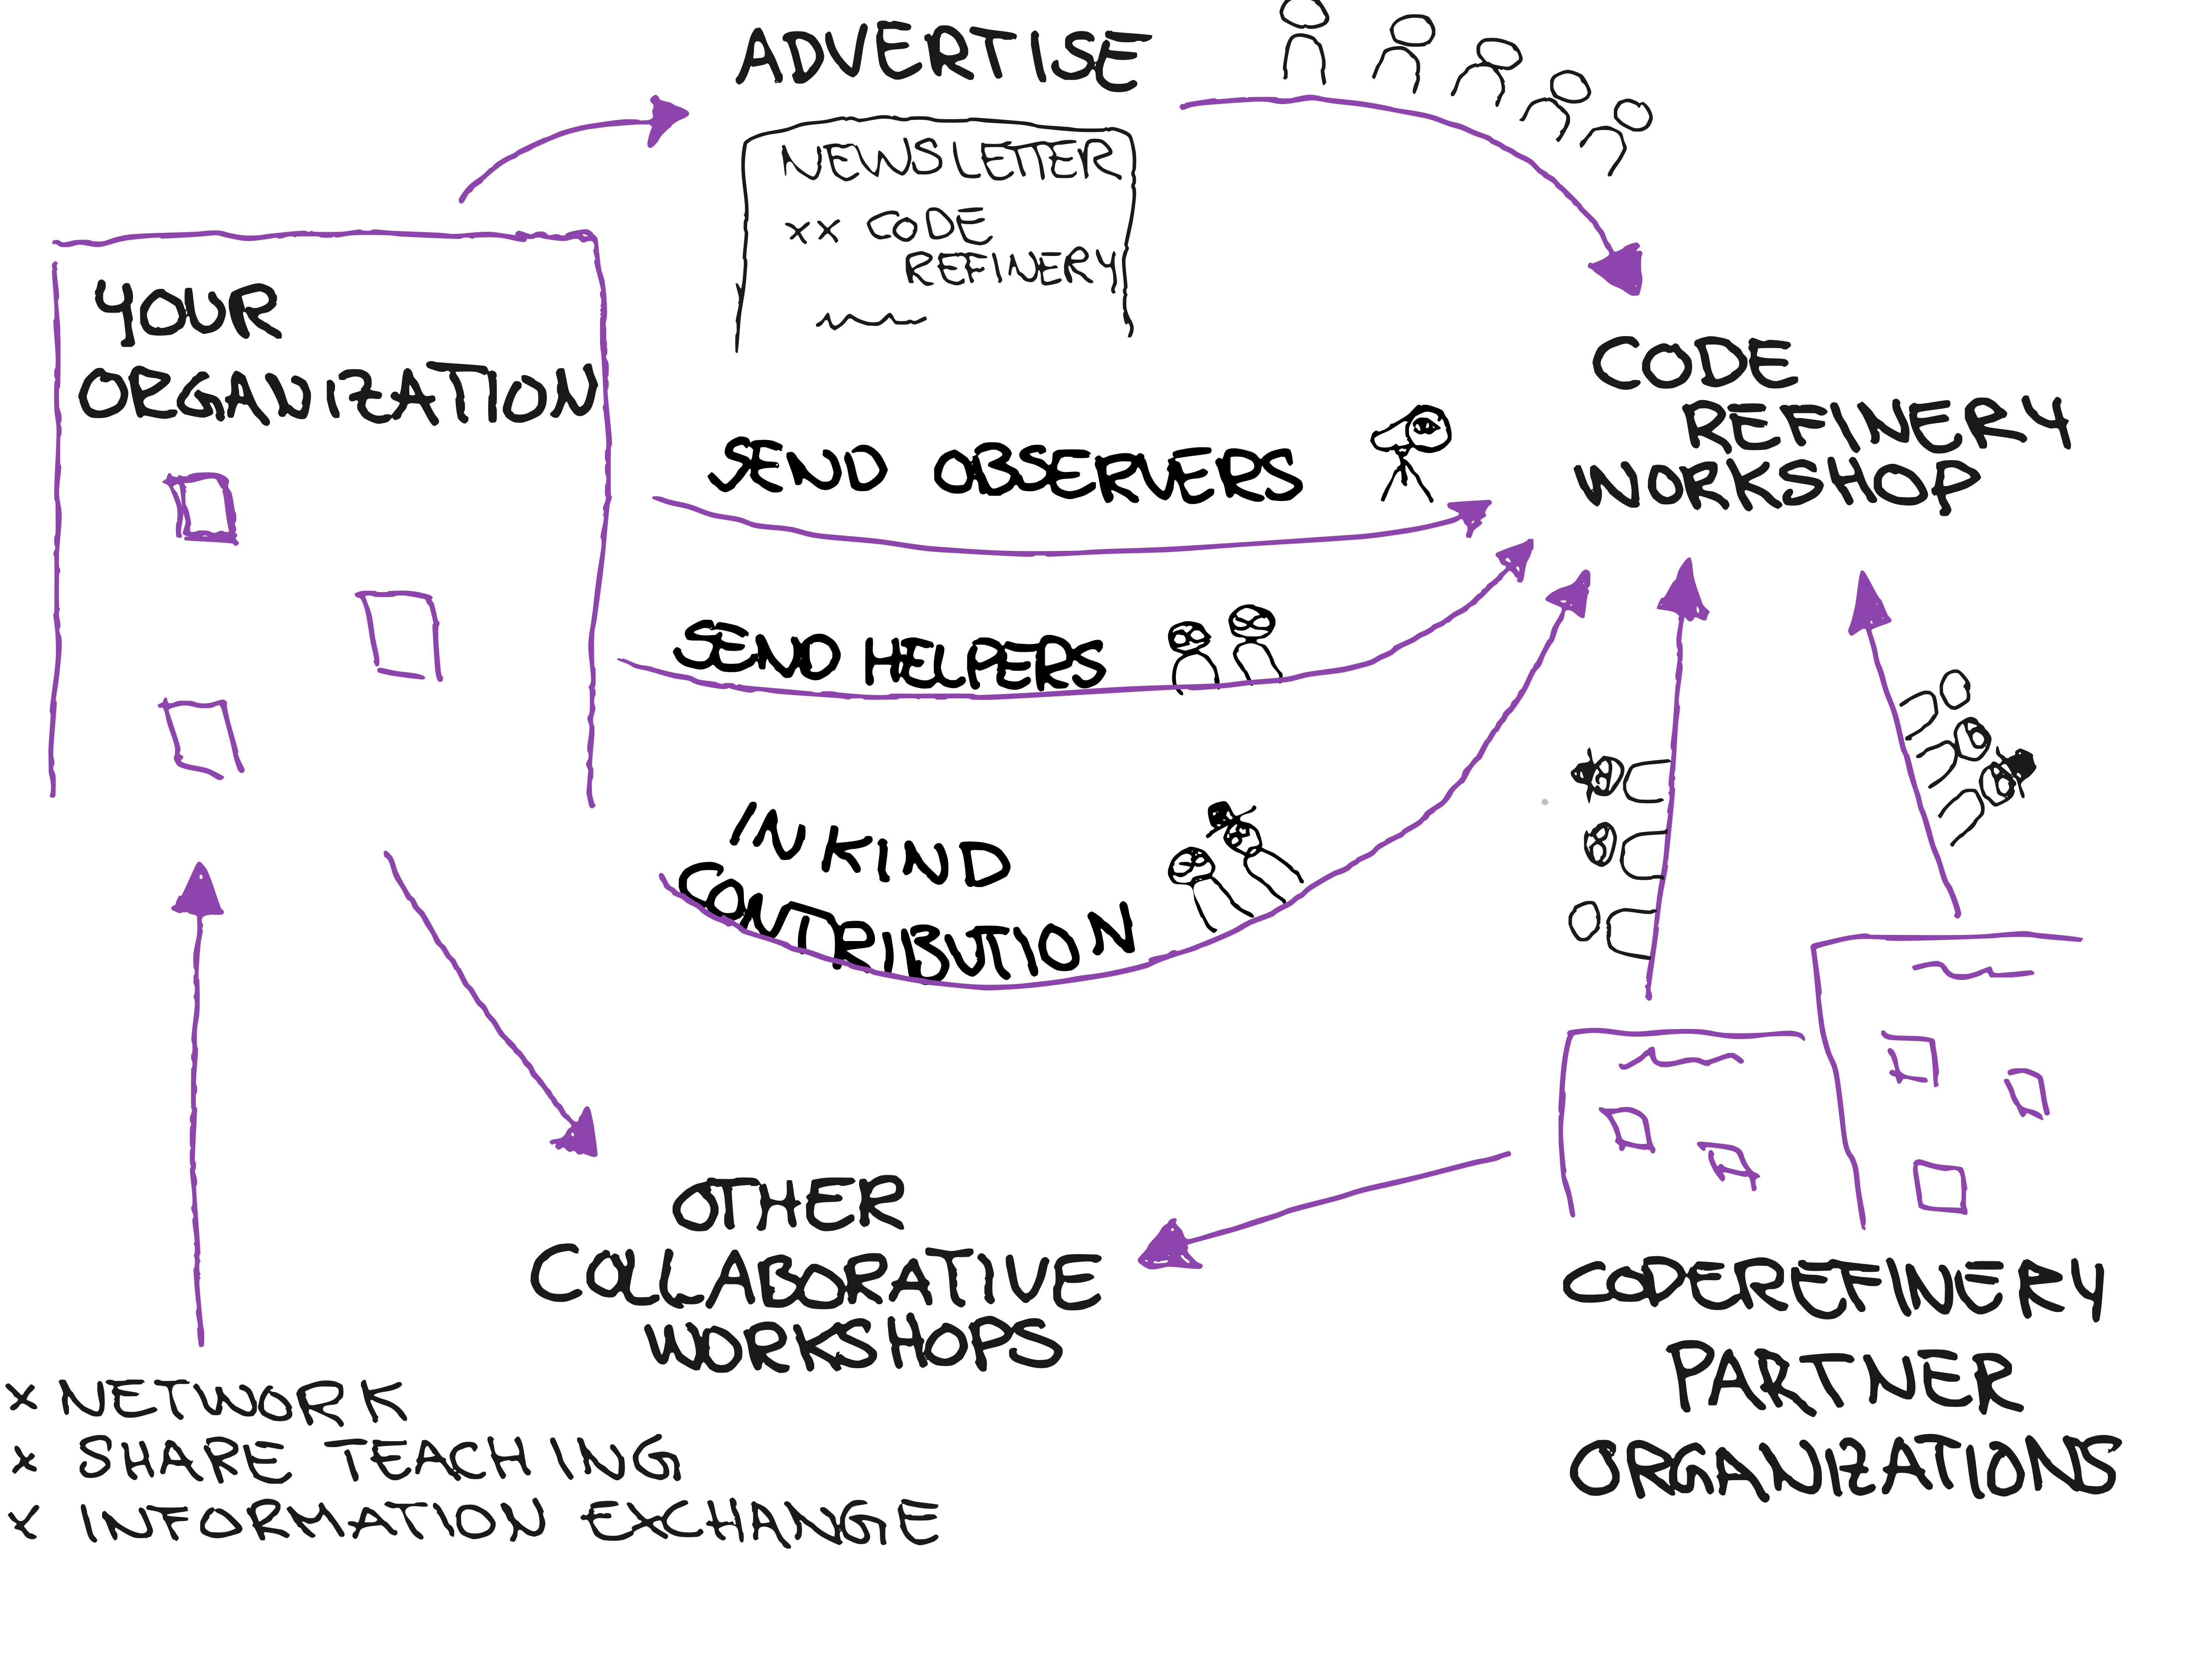 ADVERTISE
NEWSLETTER
xx CODE
REFINERY
YOUR
ORGANIZATION
CODE
REFINERY
WORKSHOP
SEND OBSERVERS
SEND HELPERS
IN KIND
CONTRIBUTION
OTHER
COLLABORATIVE
WORKSHOPS
CODEREFINERY
PARTNER
ORGANIZATIONS
x NETWORK
x SHARE TEACHING
x INFORMATION EXCHANGE